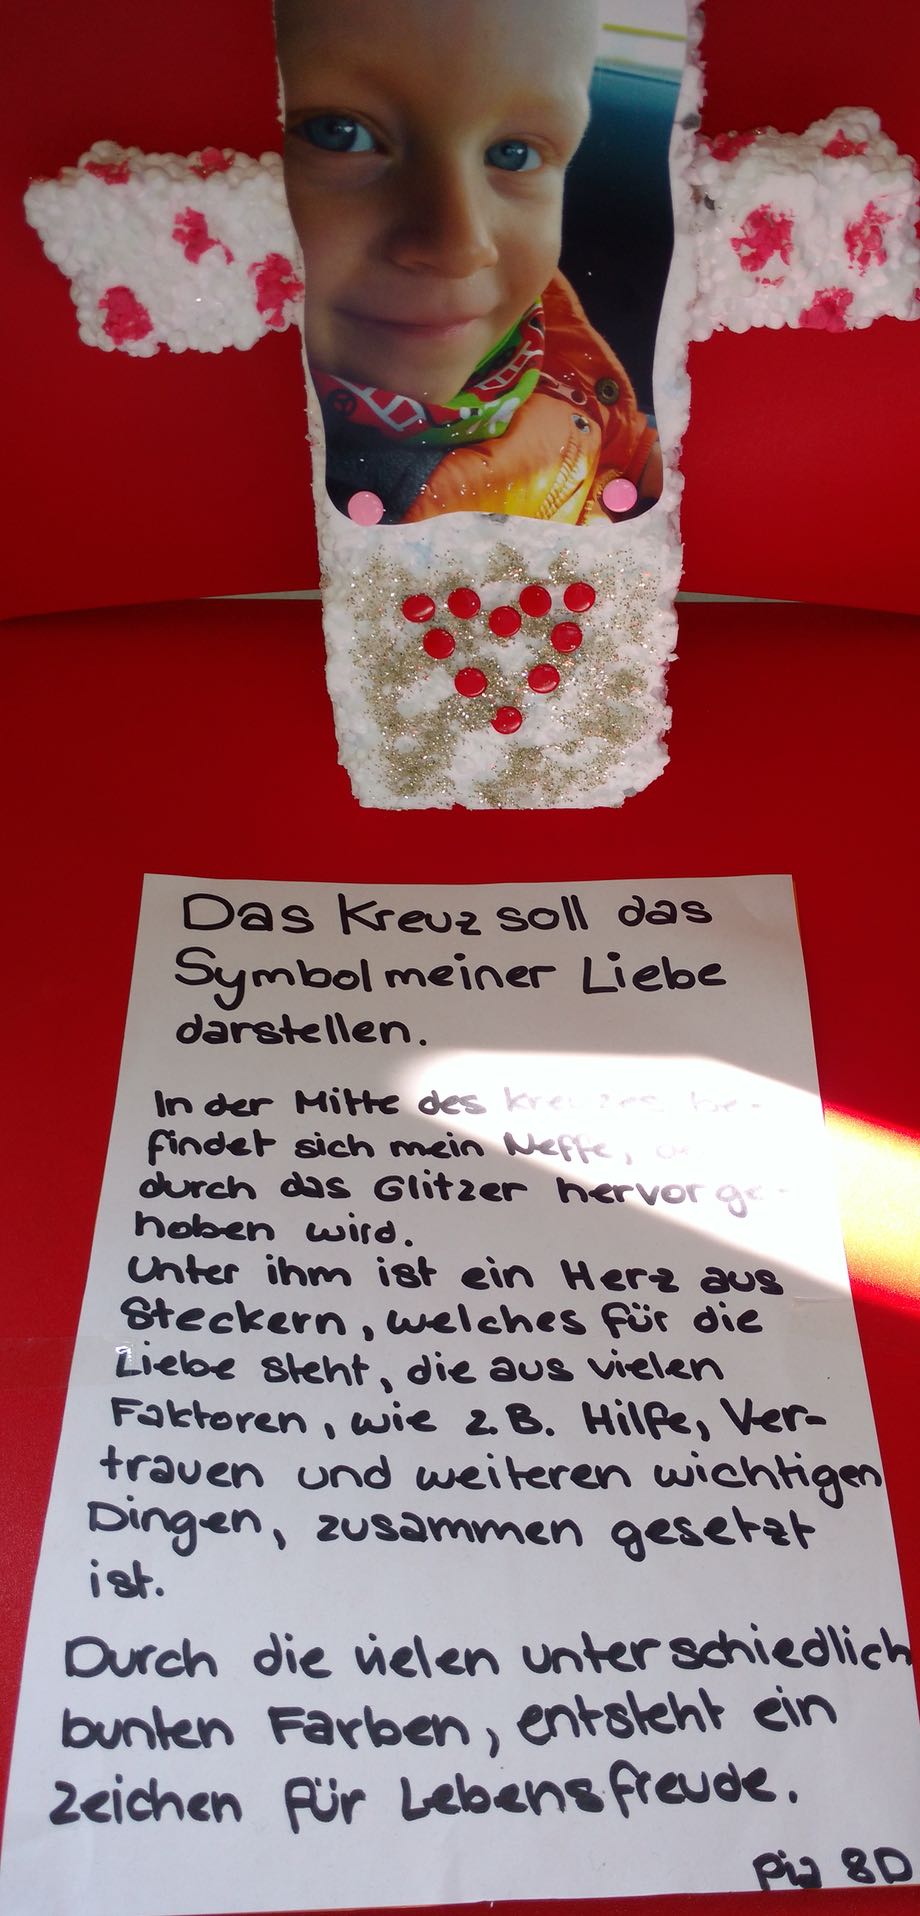 Das Kreuz soll das
Symbol meiner Liebe
darstellen.
In der Mitte des Kreuzes be-
findet sich mein Neffe,
durch das Glitzer hervorge-
hoben wird.
Unter ihm ist ein Herz aus
Steckern, welches für die
Liebe steht, die aus vielen
Faktoren, wie z.B. Hilfe, Ver-
trauen und weiteren wichtigen
Dingen, zusammen gesetzt
ist.
Durch die vielen unterschiedlich
bunten Farben, entsteht ein
Zeichen für Lebensfreude.
Pia 8D